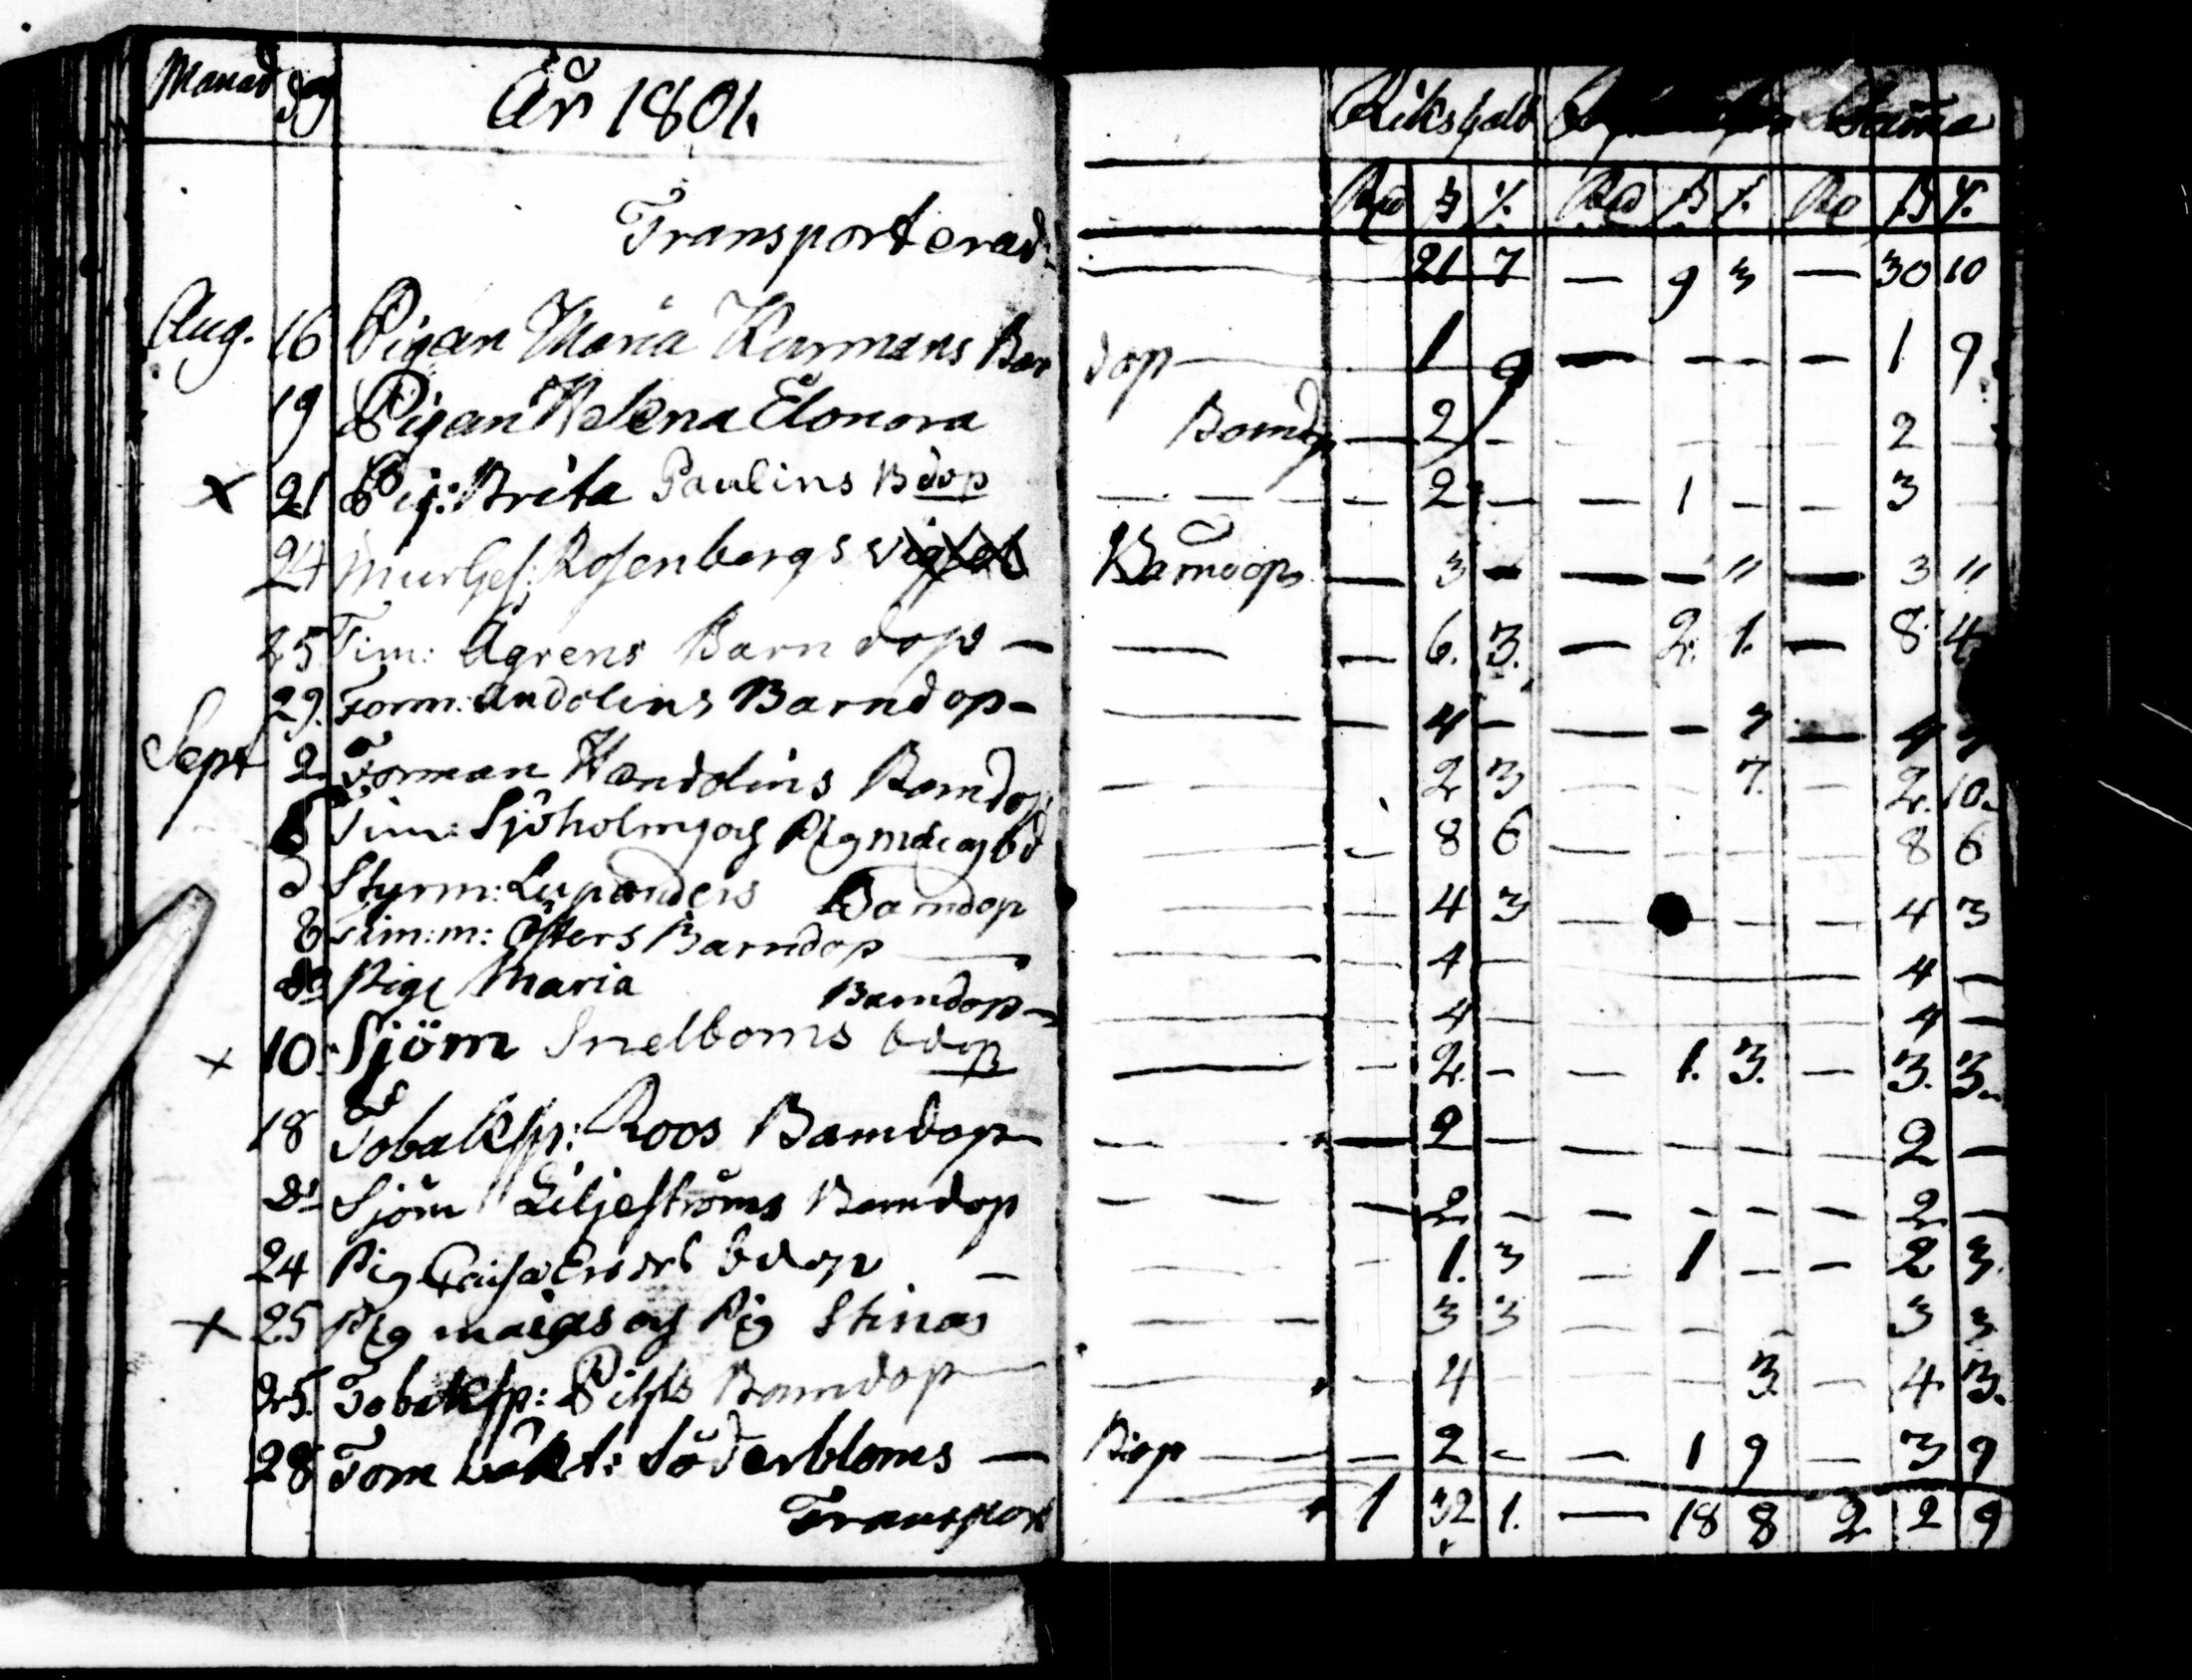 Manad dag År 1801. Riksgäld Suma
Rd ß /. Rd ß /. Rd ß /.
Transporterad. — 21 7 — 9 3 — 30 10
Aug. 16 Pigan Maria Karmans Bar dop — 1 9 — — — — 1 9
19 Pigan Helena Elonora Barndop — 2 — — — — 2 —
x 21 Pig: Brita Paulins Bdop — — 2 — — 1 — — 3
24 MurGes: Rosenbergs Barndop — 3 — — — " — 3 "
25 Tim: Ågrens Barndop — — — 6. 3. — 2. 1. — 8 4
29. Form: Andolins Barndop — — — 4 — — — 7 — 4 7
Sept 2. Forman Handolins Barndop — — 2 3 — 7. — 2. 10.
5 Tim: Sjöholms och Pig bd — — 8 6 — — — — 8 6
do Styrm: Barndop — — 4 3 — — — 4 3
8 Tim:m: Östers Barndop — — — 4 — — 4 —
do Pig Maria Barndop — — — 4 — — 4 —
x 10. Sjöm Snelboms bdop — — 2. — — 1. 3. — 3. 3.
18 Tobaksp: Roos Barndop — — — 2 — — — — — 2 —
do Sjöm Liljeströms Barndop — — — 2 — — — — — 2 —
24 Pig Bdop — — — 1. 3 — 1 — — 2 3.
x 25 Pig och Pig Stinas — — 3 3 — — — 3 3
25. Tobaksp: Pihls Barndop — — 4 — — — 3. — 4 3.
28 Söderbloms — Bdop — — 2 — — 1 9 — 3 9
Transport 1 32 1. — 18 8 2 2 9